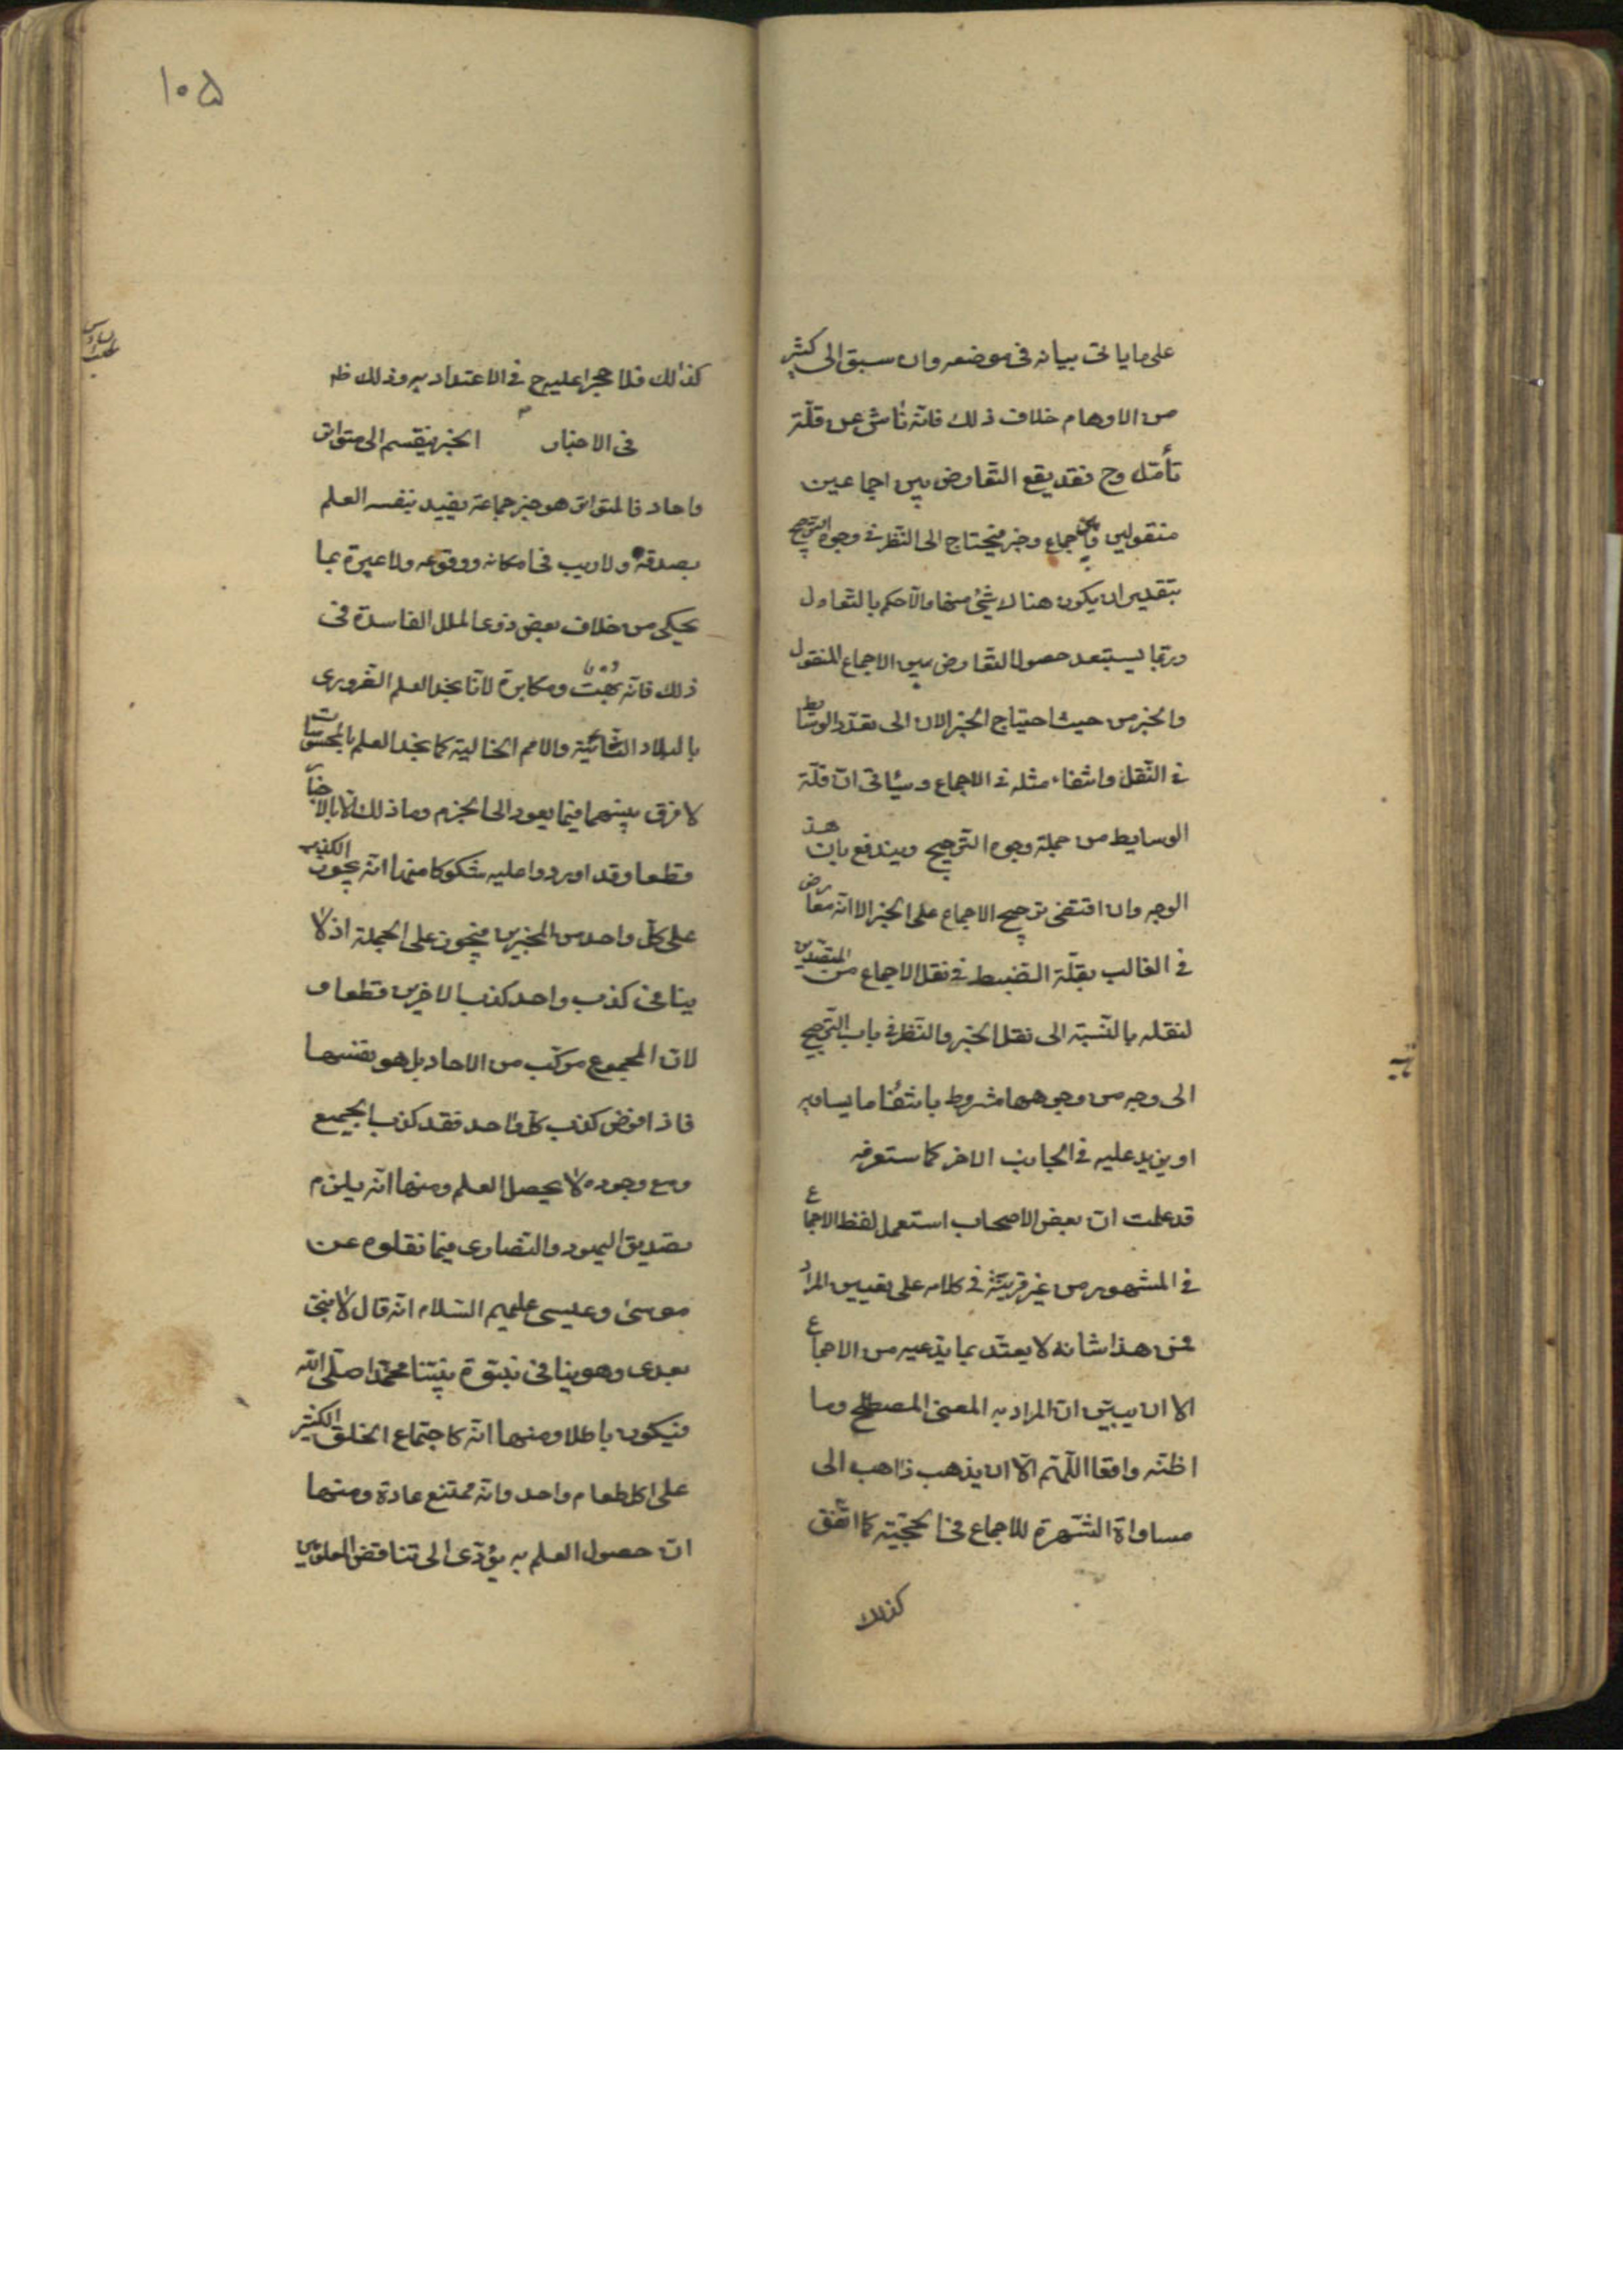 على ما ياتى بيانه فى موضعه وان سبق الى كثير
من الاوهام خلاف ذلك فانه ناش عن قلّة
تأمّل وح فقد يقع التّعارض بين اجماعين
منقولين وبين اجماع وخبر فيحتاج الى النّظر فى وجوه الترجيح
بتقدير ان يكون هناك شئ منها والّا حكم بالتّعادل
وربّما يستبعد حصول التّعارض بين الاجماع المنقول
والخبر من حيث احتياج الخبر الان الى تعدّد الوسايط
فى النّقل وانتفاء مثله فى الاجماع وسيأتى انّ قلّة
الوسايط من جملة وجوه التّرجيح ويندفع بان هذا
الوجه وان اقتضى ترجيح الاجماع على الخبر الا انه معارض
فى الغالب بقلّة الضّبط فى نقل الاجماع من المتصدّين
لنقله بالنّسبة الى نقل الخبر والنّظر فى باب التّرجيح
الى وجه من وجوهها مشروط بانتفاء ما يساويه
او يزيد عليه فى الجانب الاخر كما ستعرفه
قد علمت ان بعض الاصحاب استعمل لفظ الاجماع
فى المشهور من غير قرينة فى كلامه على تعيين المراد
فمن هذا شانه لا يعتدّ بما يدّعيه من الاجماع
الا ان يبيّن ان المراد به المعنى المصطلح وما
اظنّه واقعا اللّهم الّا ان يذهب ذاهب الى
مساواة الشّهرة للاجماع فى الحجّيّة كما اتّفق
كذلك
١٠۵
كذلك فلا حجر عليه ح فى الاعتداد به وذلك ظ
فى الاخبار الخبر ينقسم الى متواتر
واحاد فالمتواتر هو خبر جماعة يفيد بنفسه العلم
بصدقه ولا ريب فى امكانه ووقوعه ولا عبرة بما
يحكى من خلاف بعض ذوى الملل الفاسدة فى
ذلك فانّه بهت ومكابرة لانّا نجد العلم الضّرورى
بالبلاد النّائية والامم الخالية كما نجد العلم بالمحسوسات
لا فرق بينهما فيما يعود الى الجزم وما ذلك الّا بالاخبار
قطعا وقد اوردوا عليه شكوكا منها انّه يجوز الكذب
على كلّ واحد من المخبرين فيجوز على الجملة اذ لا
ينافى كذب واحد كذب الاخرين قطعا و
لان المجموع مركّب من الاحاد بل هو نفسها
فاذا فرض كذب كلّ واحد فقد كذب الجميع
ومع وجوده لا يحصل العلم ومنها انّه يلزم
تصديق اليهود والنّصارى فيما نقلوه عن
موسى وعيسى عليهم السّلام انّه قال لا نبىّ
بعدى وهو ينافى نبوّة نبيّنا محمّد صلّى الله
فيكون باطلا ومنها انّه كاجتماع الخلق الكثير
على اكل طعام واحد وانّه ممتنع عادة ومنها
ان حصول العلم به يؤدّى الى تناقض المعلومين